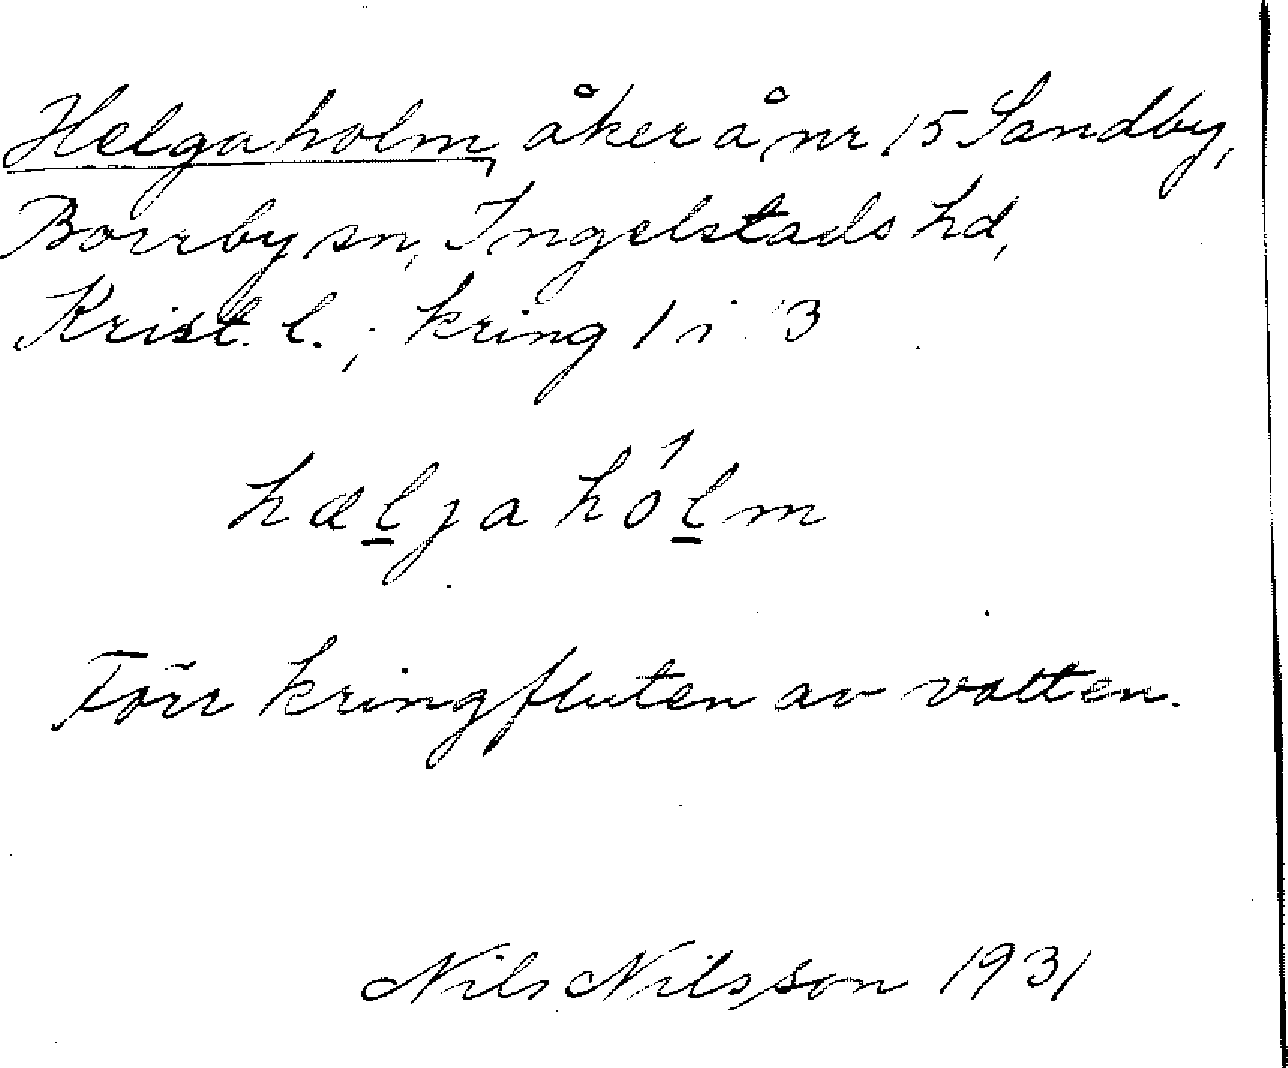 Helgaholm, åker å nr 15 Sandby,
Borrby sn, Ingelstads hd,
Krist. l.; kring 1 i 3
hæljahólm
Förr kringfluten av vatten.
Nils Nilsson 1931